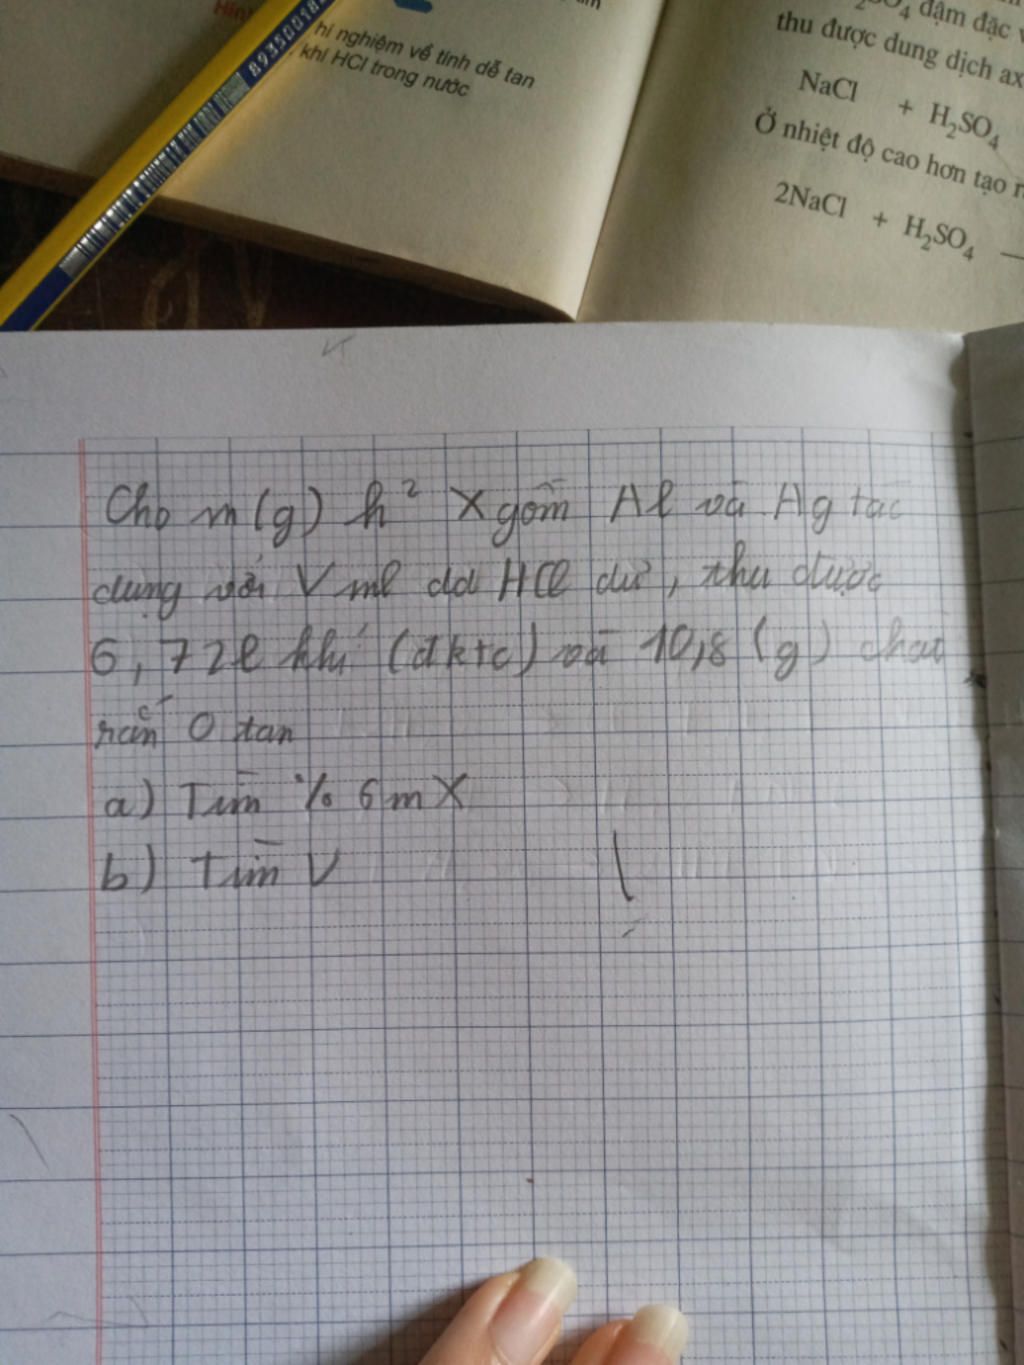 Hìn
hí nghiệm về tính dễ tan
khí HCl trong nước
8935001
SO₄ đậm đặc v
thu được dung dịch ax
NaCl + H₂SO₄
Ở nhiệt độ cao hơn tạo r
2NaCl + H₂SO₄ —
Cho m(g) h² X gồm Al và Ag tác
dụng với V ml dd HCl dư, thu được
6,72l khí (đktc) và 10,8 (g) chất
rắn O tan
a) Tìm % 6 m X
b) Tìm V